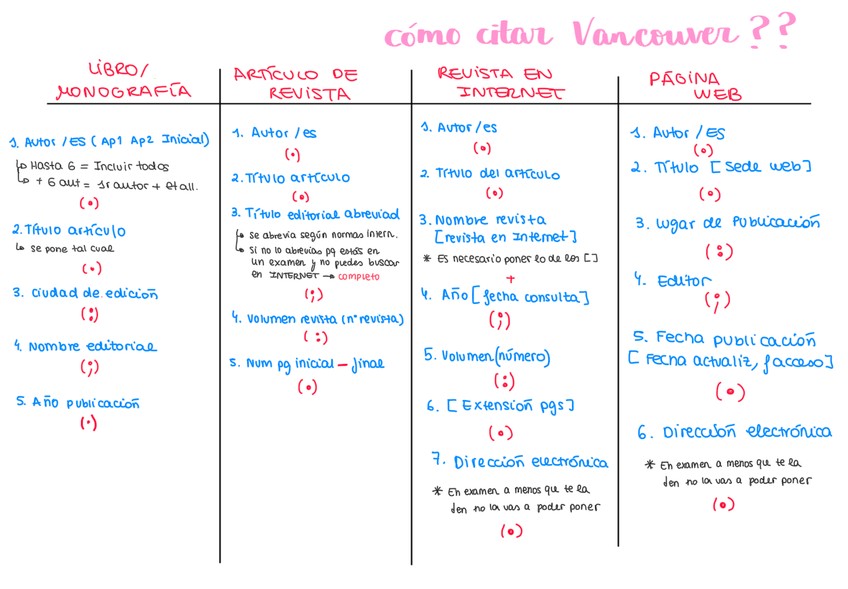 cómo citar Vancouver??
LIBRO/
MONOGRAFÍA
1. Autor/ES (Ap1 Ap2 Inicial)
Hasta 6 = Incluir todos
+ 6 aut = 1r autor + et all.
(.)
2. Título artículo
se pone tal cual
(.)
3. Ciudad de edición
(:)
4. Nombre editorial
(;)
5. Año publicación
(.)
ARTÍCULO DE
REVISTA
1. Autor/es
(.)
2. Título artículo
(.)
3. Título editorial abreviad
se abrevia según normas intern.
Si no lo abrevias pq estás en
un examen y no puedes buscar
en INTERNET → completo
(;)
4. Volumen revista (nº revista)
(:)
5. Num pg inicial – final
(.)
REVISTA EN
INTERNET
1. Autor/es
(.)
2. Título del artículo
(.)
3. Nombre revista
[revista en Internet]
* Es necesario poner lo de los []
+
4. Año [fecha consulta]
(;)
5. Volumen (número)
(:)
6. [Extensión pgs]
(.)
7. Dirección electrónica
* En examen a menos que te la
den no la vas a poder poner
(.)
PÁGINA
WEB
1. Autor/ES
(.)
2. Título [Sede web]
(.)
3. Lugar de Publicación
(:)
4. Editor
(;)
5. Fecha publicación
[Fecha actualiz, f acceso]
(.)
6. Dirección electrónica
* En examen a menos que te la
den no la vas a poder poner
(.)